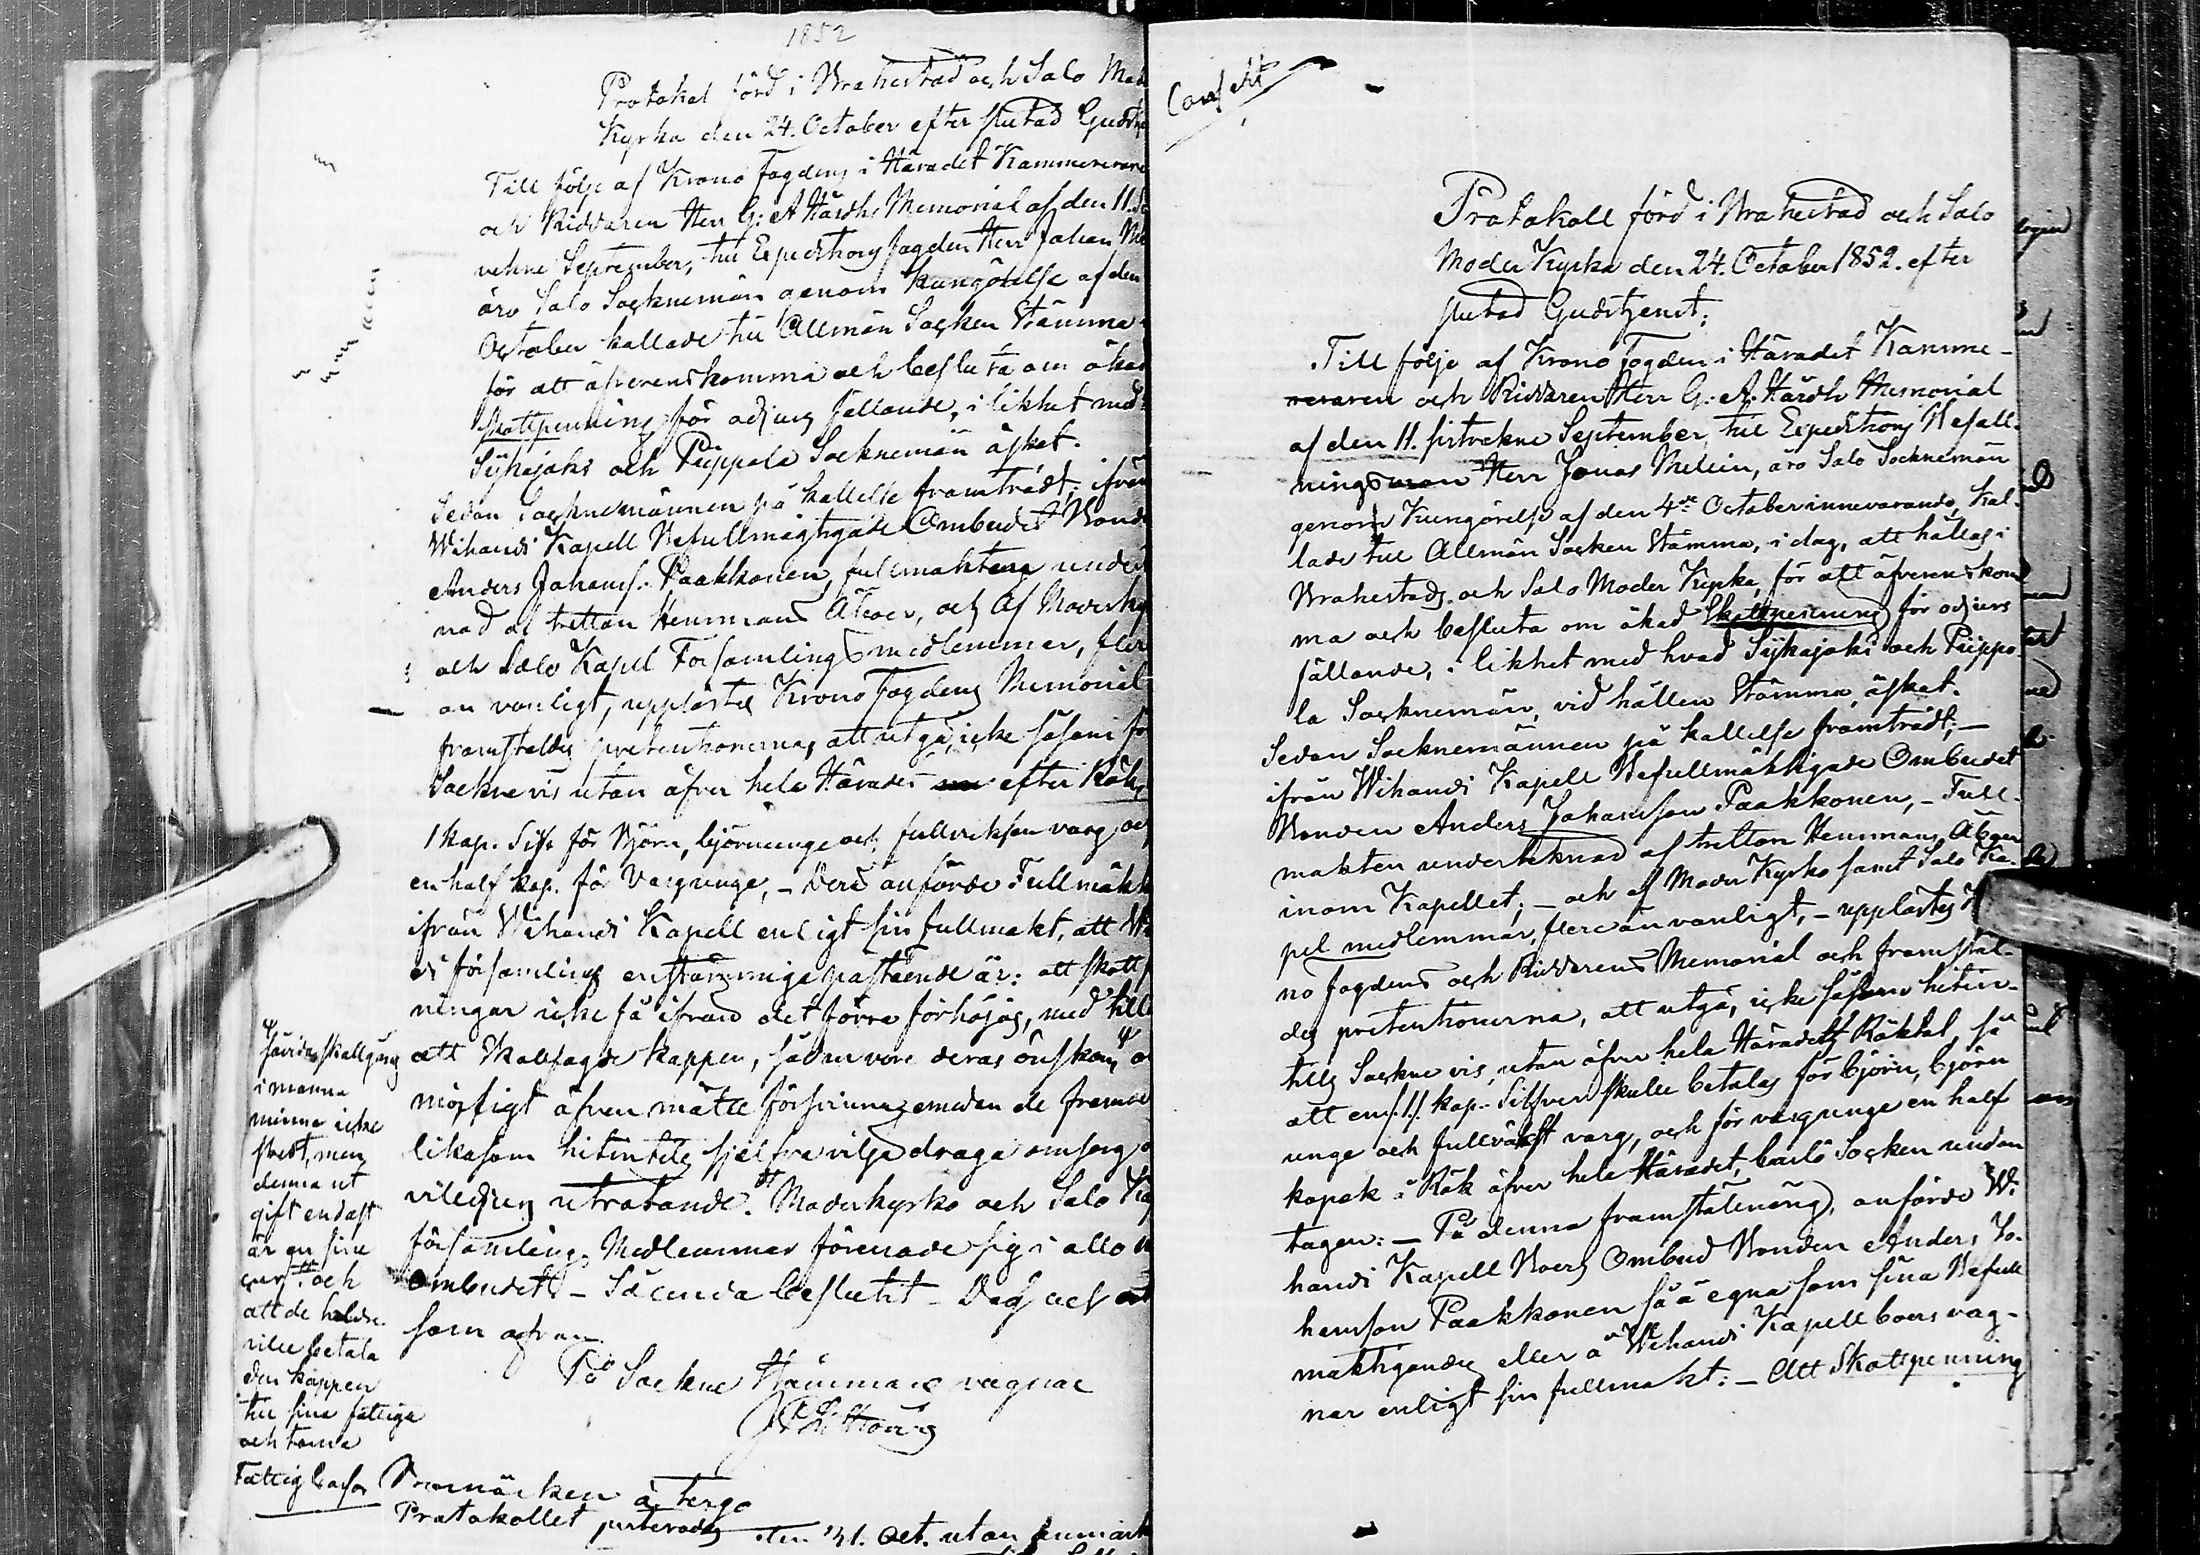 1852
Protokol förd i Brahestad och Salo Mod
Kyrka den 24. October efter slutad Gudstj
Till följe af Krono Fogdens i Häradet Kammererare
och Riddaren Herr G: A Hårdhs Memorial af den 11.
vekne September, till Expeditions fogden Herr Johan Me
äro Salo Socknemän genom Kungörelse af den
October kallade till Allmän Socken Stämma
för att öfverenskomma och besluta om ökad
skottpenning för odjurs fällande, i likhet med
Sijkajoki och Pijppola Socknemän äskat.
Sedan Socknemännen på kallelse framträdt; ifrån
Wihandi Kapell Befullmägtigade Ombudet Bonde
Anders Johans. Paakkonen, fullmakten under
nad af tretton Hemmans Åboer, och af Moderky
och Salo Kapel Församlings medlemmar, fler
än vanligt, upplästes Krono Fogdens Memorial
framstäldes pretentionerna, att utgå, icke såsom fö
Sockne vis utan öfver hela Häradet efter Rök
1 kop. Silfr för Björn, björnunge och fullvuxen varg, oc
en half kop. för Vargunge, - Derå anförde Fullmäkt
ifrån Wihandi Kapell enligt sin fullmakt, att Wi
di församlings enstämmiga påstående är: att skottp
ningar icke få ifrån det förra förhöjas, med till
att Skallfogde kappen, sådan vore deras önskan, o
möjligt äfven måtte försvinna, emedan de
likasom hitintills sjelfve vilja draga omsorg
utrotande. Moderkyrko och Salo Ka
församlings Medlemmar förenade sig i allo
Ombudet. - Sålunda beslutit - Dag och
som ofvan
På Sockne Stämmans vägnar
såvida skallgång
i manna
minne icke
skedt, men
denna ut
gift endast
är en
och
att de heldre
ville betala
den kappen
till sina fattiga
och tomma
Fattig Cassor
à tergo
Protokollet justerades den 31. Oct. utan anmärk
Conscht
Protokoll förd i Brahestad och Salo
Moder Kyrka den 24. October 1852. efter
slutad Gudstjenst;
Till följe af Krono Fogden i Häradet Kamme-
reraren och Riddaren Herr G: A. Hårdh Memorial
af den 11. sistvekne September, till Expeditions Befall-
ningsman Herr Jonas Melein, äro Salo Socknemän
genom Kungörelse af den 4de October innevarande, kal-
lade till Allmän Socken Stämma, i dag, att hållas i
Brahestads och Salo Moder Kyrka, för att öfverenskom
ma och besluta om ökad Skottpenning för odjurs
fällande, i likhet med hvad Sijkajoki och Pijppo
la Socknemän, vid hållen Stämma, äskat.
Sedan Socknemännen på kallelse framträdt; -
ifrån Wihandi Kapell Befullmäktigade Ombudet
Bonden Anders Johansson Paakkonen, - Full-
makten undertecknad af tretton Hemmans Åboer
inom Kapellet; - och af Moder Kyrko samt Salo Ka-
pel medlemmar, flere än vanligt, - upplästes
no fogdens och Riddarens Memorial och framstäl-
des pretentionerna, att utgå, icke såsom hitin-
tills Sockne vis, utan öfver hela Häradets Röktal, så
att en /:1:/ kop. Silfver skulle betalas för björn, björn
unge och fullväxt varg, och för vargunge en half
kopek å Rök öfver hela Häradet, Carlö Socken undan
tagen: - På denna framställning, anförde Wi
handi Kapell Boers Ombud Bonden Anders Jo-
hansson Paakkonen så å egna som sina Befull
mäktigandes eller å Wihandi Kapellboers väg-
nar enligt sin fullmakt: - Att Skottpenning